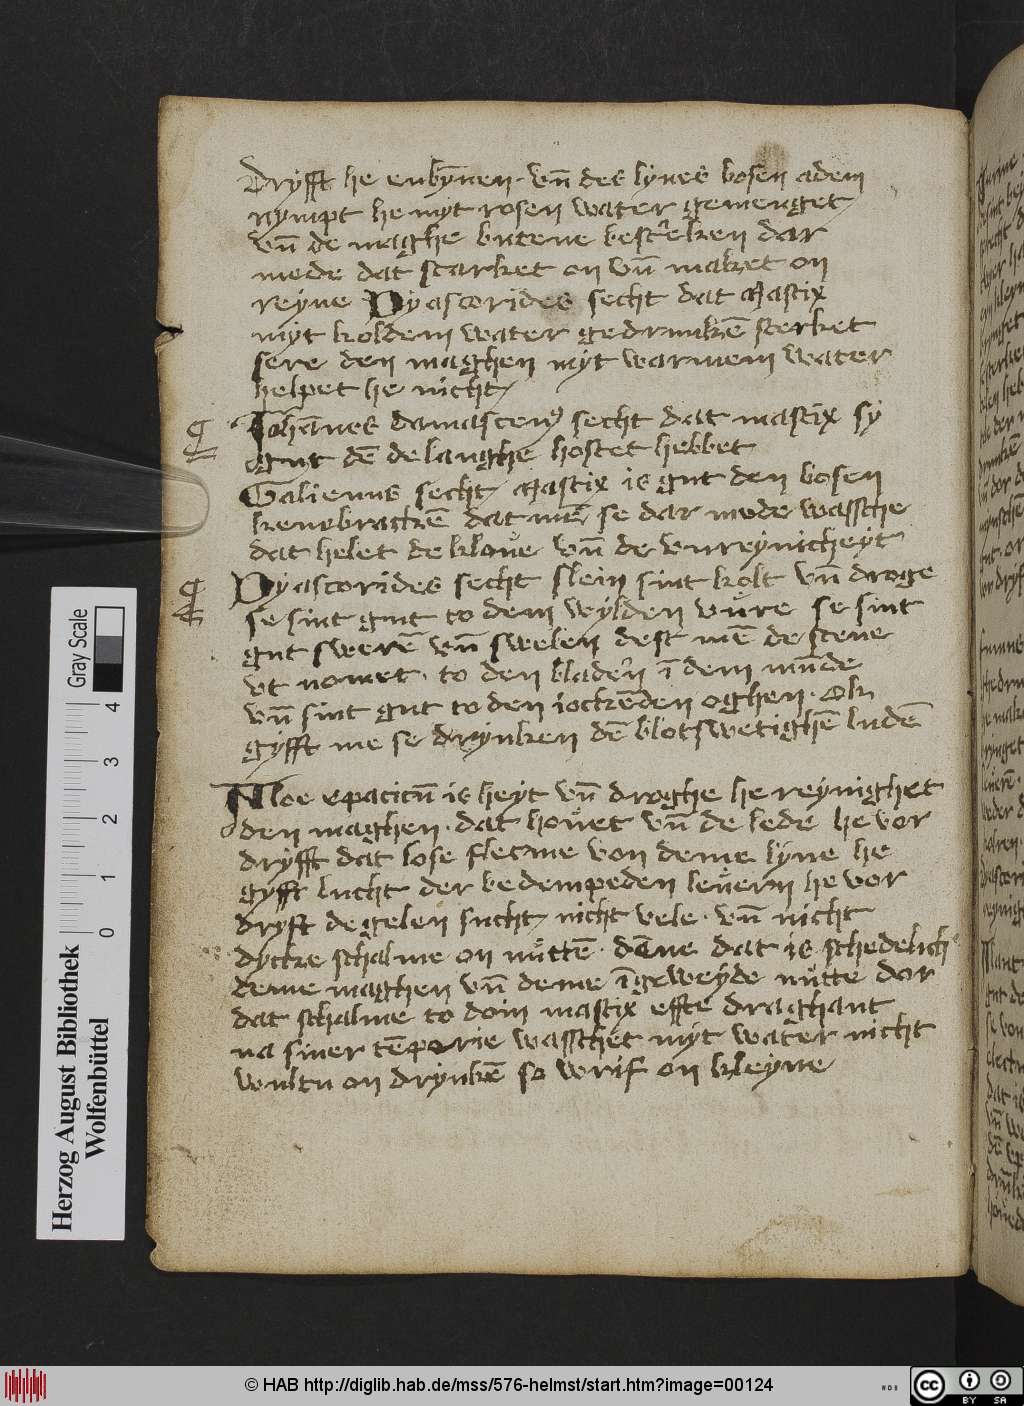 Dryfft he enbȳnen · vn̄ des lyues bosen adem
nympt he myt rosen water gemenget
vn̄ de maghe butene bestreken dar
mede dat starket on vn̄ maket on
reyne Dyascorides secht dat Mastix
myt koldem water gedrunkē sterket
sere den maghen myt warmem water
helpet he nicht
¶ Johānes damascenꝰ secht dat mastix sy
gut dē de langhe hostet hebbet
Galienus secht Mastix is gut den bosen
dat mē se dar mede wassche
dat helet de kloue vn̄ de vnreynicheyt
¶ Dyascorides secht slein sint kolt vn̄ droge
se sint gut to dem wylden vu̇re se sint
gut swerē vn̄ swelen dest mē de stene
vt nomet · to den bladern ī dem munde
vn̄ sint gut to den iockēden oghen · Ok
gyfft me se drynken dē blotswetighē ludē
Aloe epaticū is heyt vn̄ droghe he reynighet
den maghen · dat houet vn̄ de lede he vor
dryfft dat lose flecme von deme lyue he
gyfft lucht der bedempeden leuern he vor
dryft de gelen sucht nicht vele · vn̄ nicht
dycke schalme on nuttē · dāne dat is schedelich
deme maghen vn̄ deme īgeweyde nutte dor
dat schalme to doin mastix effte draghant
na siner tēporie wasschet myt water nicht
wultu on drynkē so wrif on kleyne
Herzog August Bibliothek
Wolfenbüttel
0 1 2 3 4
Gray Scale
© HAB http://diglib.hab.de/mss/576-helmst/start.htm?image=00124
WDB
cc BY SA